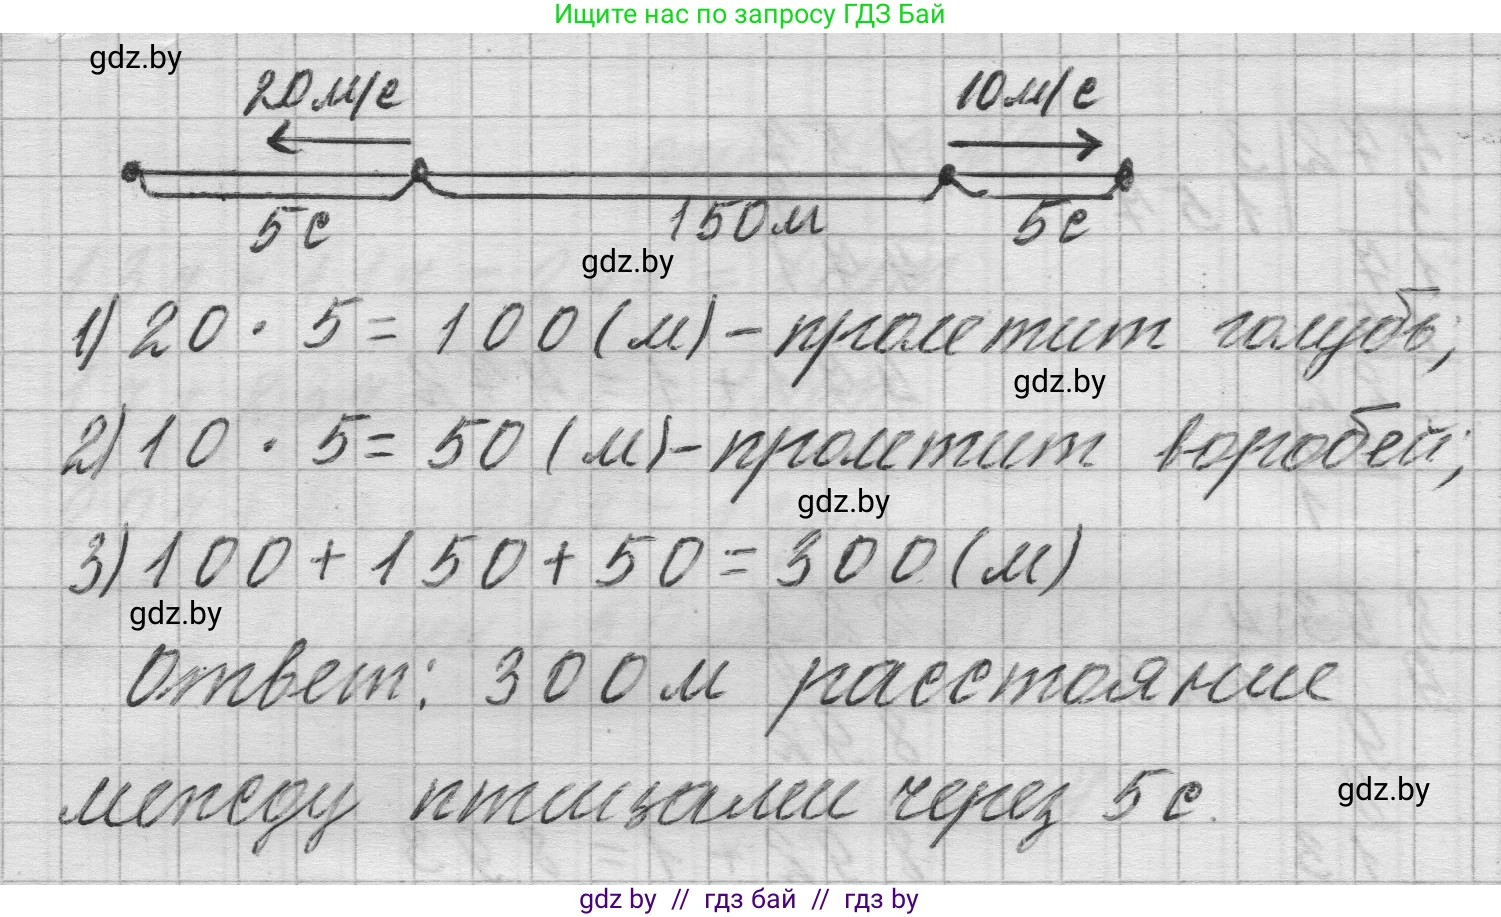 Ищите нас по запросу ГДЗ Бай
gdz.by
20м/с 10м/с
5с 150м 5с
gdz.by
1) 20 · 5 = 100 (м) - пролетит голубь;
gdz.by
2) 10 · 5 = 50 (м) - пролетит воробей;
gdz.by
3) 100 + 150 + 50 = 300 (м)
gdz.by
Ответ: 300 м расстояние
между птицами через 5 с.
gdz.by
gdz.by // гдз бай // гдз by